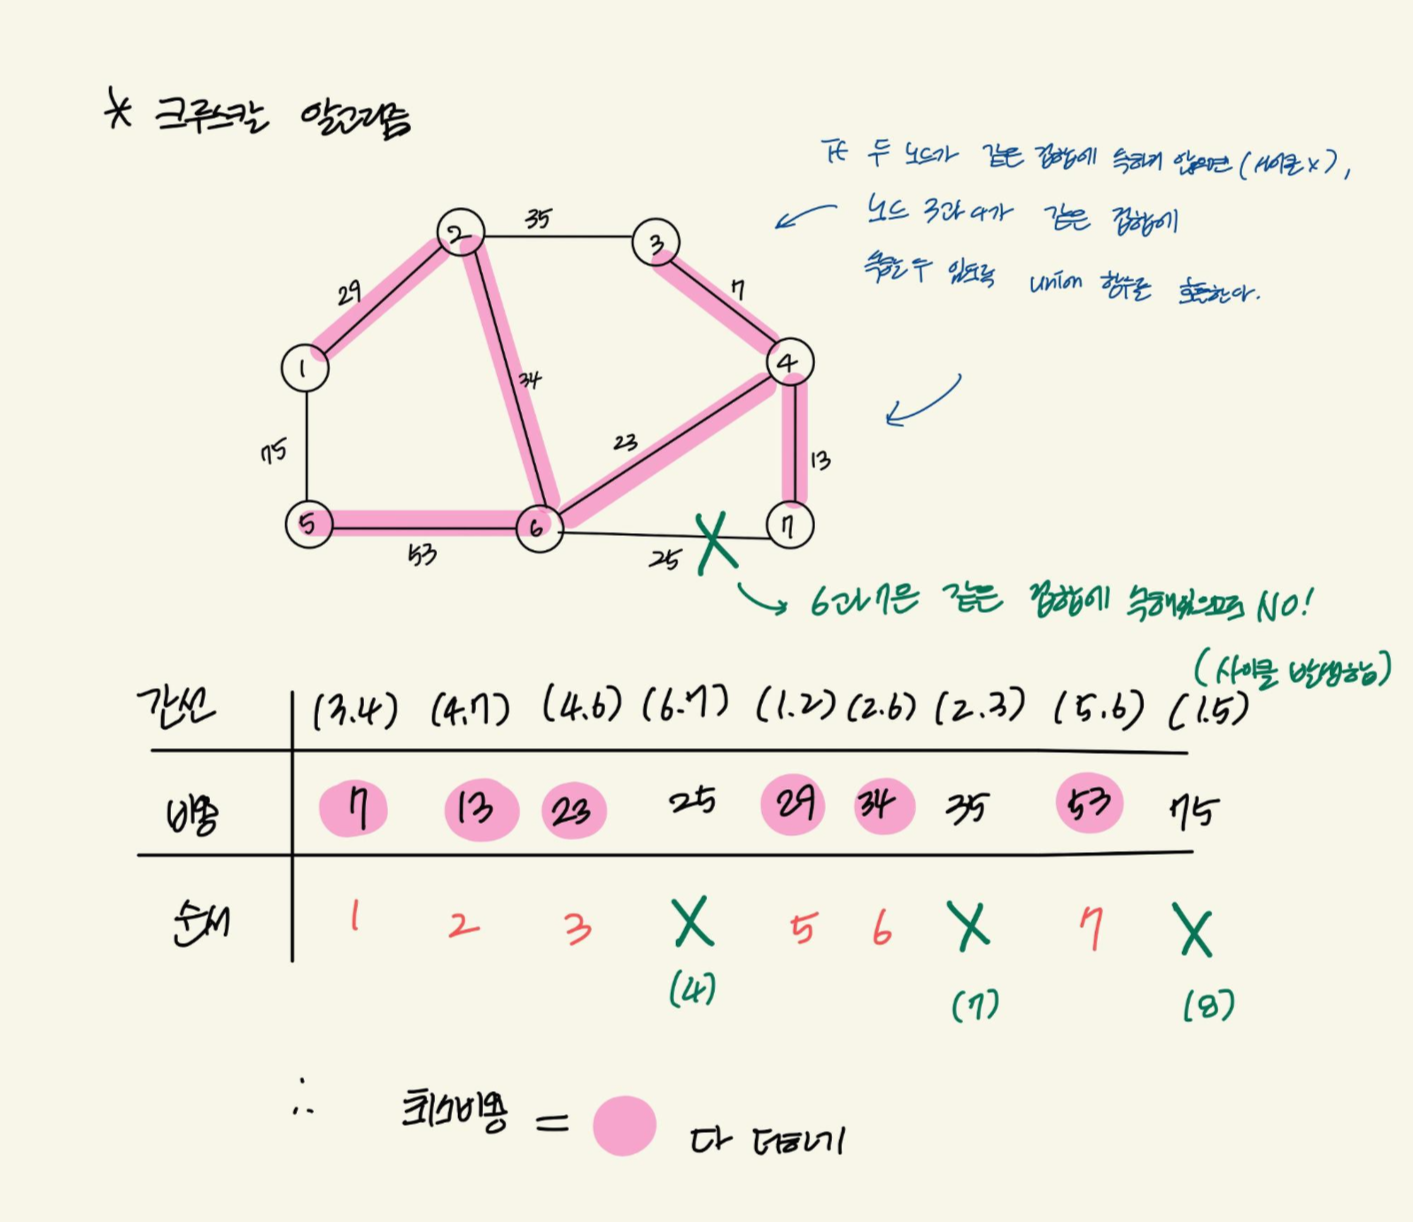 * 크루스칼 알고리즘
두 노드가 같은 집합에 속하지 않으면 (사이클 x),
노드 3과 4가 같은 집합에
속할 수 있도록 union 함수를 호출한다.
2
35
3
29
7
1
34
4
75
23
13
5
6
7
53
25
X
6과 7은 같은 집합에 속해있으므로 NO!
(사이클 발생함)
간선 (3.4) (4.7) (4.6) (6.7) (1.2) (2.6) (2.3) (5.6) (1.5)
비용 7 13 23 25 29 34 35 53 75
순서 1 2 3 X 5 6 X 7 X
(4) (7) (8)
∴ 최소비용 = 다 더하기